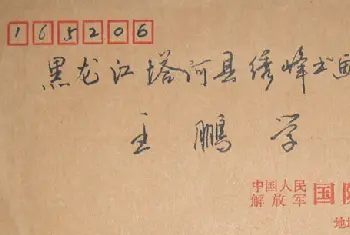 165206
黑龙江塔河县绣峰书画
王鹏学
中国人民
解放军
国防
地址